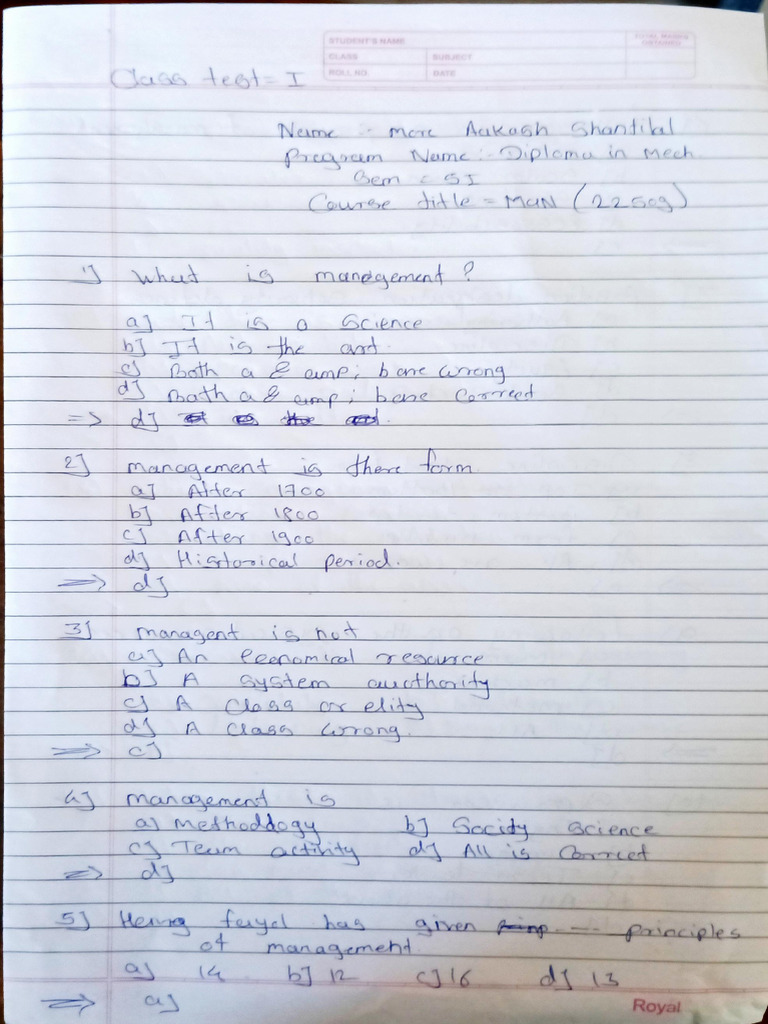 STUDENT'S NAME
TOTAL MARKS OBTAINED
CLASS SUBJECT
ROLL NO. DATE
Class test = I
Name :- more Aakash Shantilal
Program Name :- Diploma in Mech
Sem = 5I
Course title = MAN (22509)
1] What is management ?
a] It is a Science
b] It is the art.
c] Both a & amp; b are wrong
d] Both a & amp; b are Correct
=> d]
2] management is there form
a] After 1700
b] After 1800
c] After 1900
d] Historical period.
=> d]
3] managent is not
a] An economical resource
b] A system aucthority
c] A Class or elity
d] A Class wrong.
=> c]
4] management is
a] methoddogy b] Socity science
c] Team activity d] All is Correct
=> d]
5] Henry fayol has given --- principles
of management.
a] 14 b] 12 c] 16 d] 13
=> a]
Royal